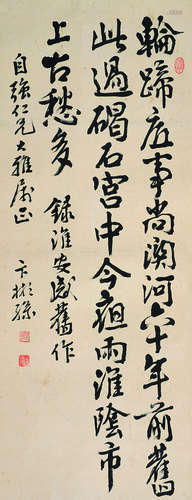 輪蹄底事尚關河六十年前舊
此過碣石宮中今雨淮陰市
上古愁多 錄淮安感舊作
自強仁兄大雅屬正
卞彬孫